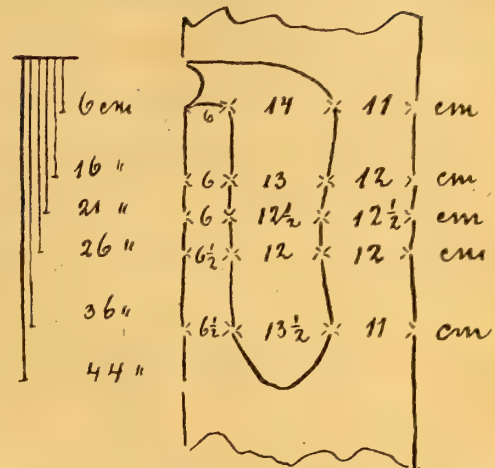 6 cm 6 14 11 cm
16 " 6 13 12 cm
21 " 6 12½ 12½ cm
26 " 6½ 12 12 cm
36 " 6½ 13½ 11 cm
44 "